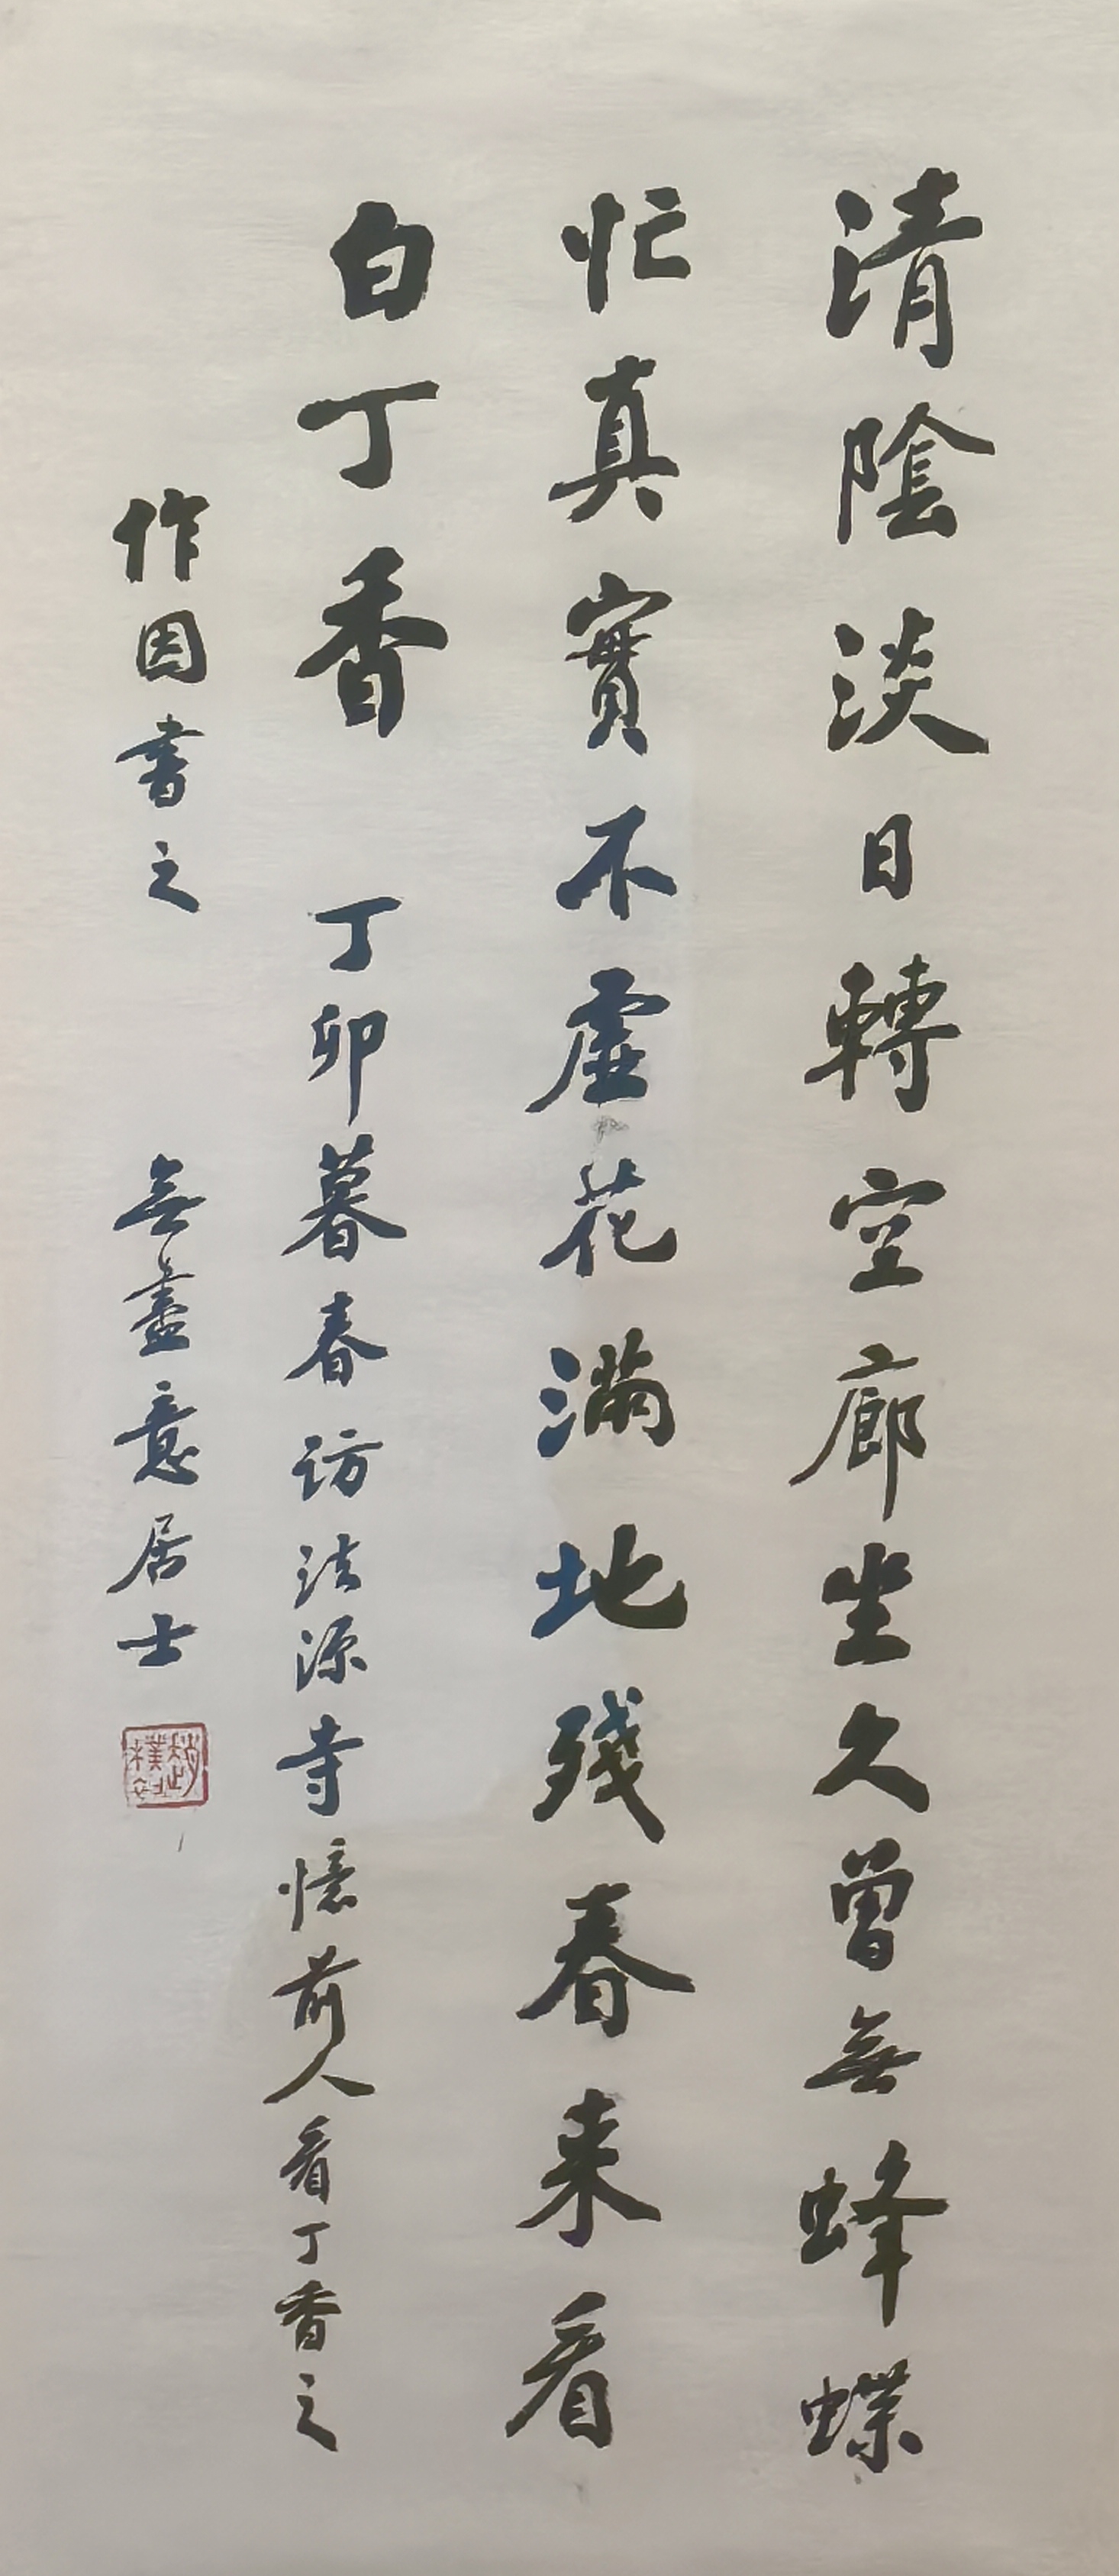 清陰淡日轉空廊坐久曾無蜂蝶
忙真實不虛花滿地殘春来看
白丁香 丁卯暮春访法源寺憶前人看丁香之
作因書之 無盡意居士
趙樸初